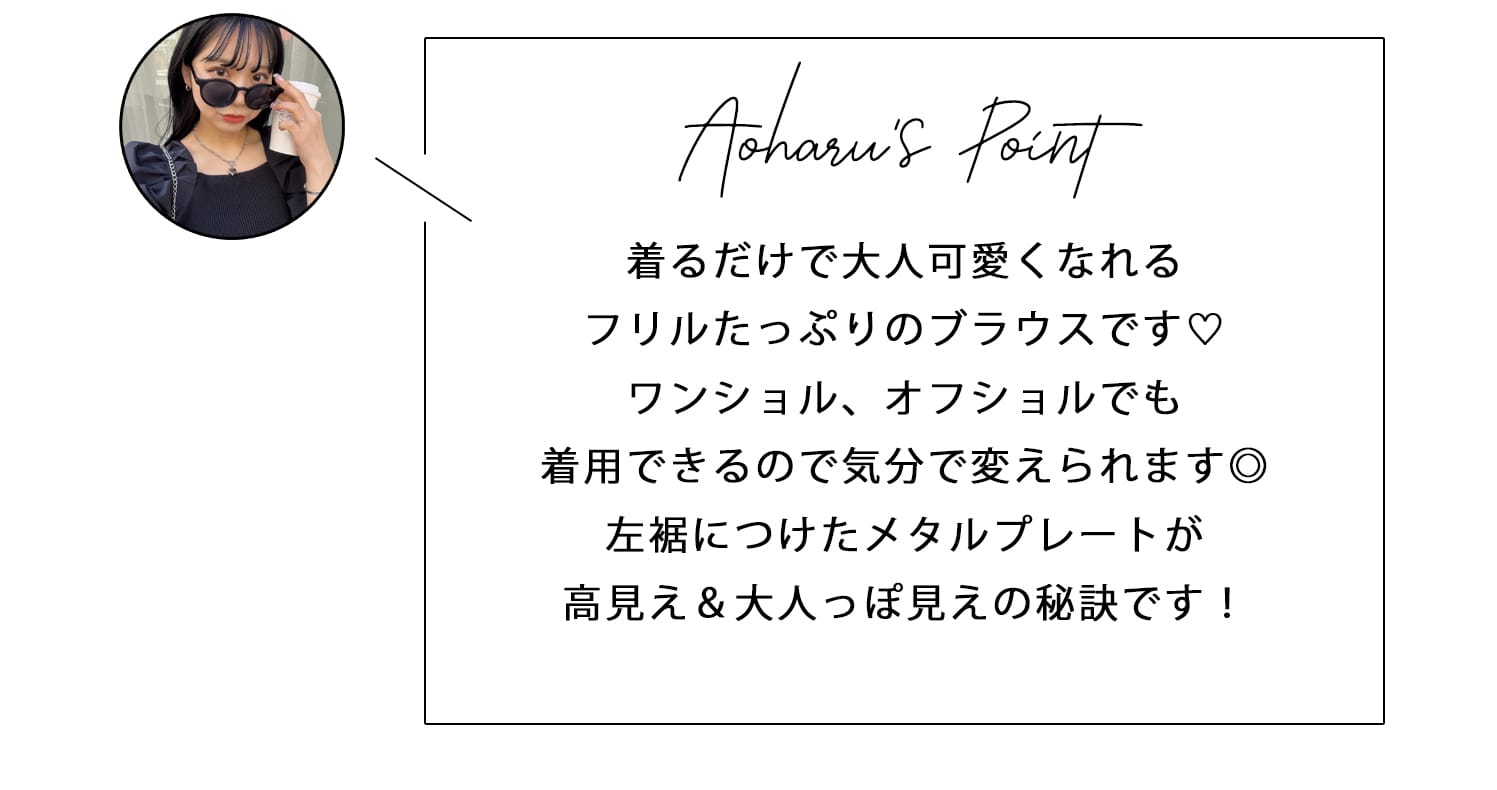 Aoharu's Point
着るだけで大人可愛くなれる
フリルたっぷりのブラウスです♡
ワンショル、オフショルでも
着用できるので気分で変えられます◎
左裾につけたメタルプレートが
高見え＆大人っぽ見えの秘訣です！